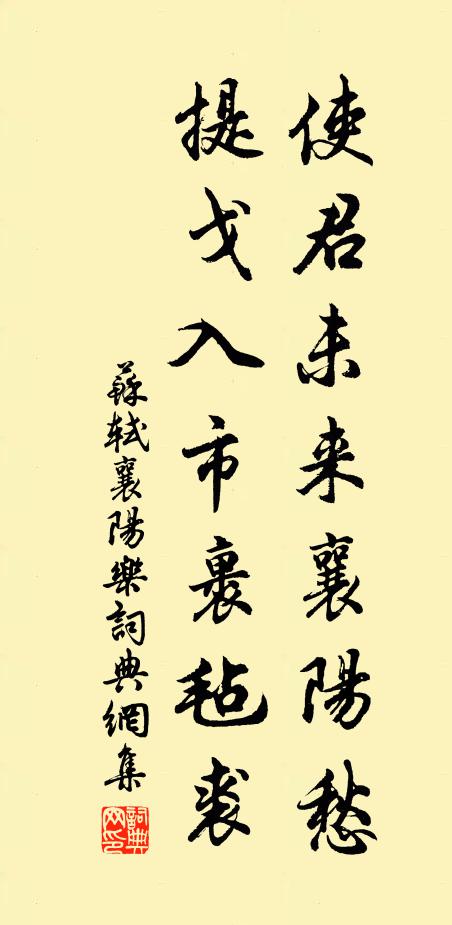 使君未来襄陽愁
提戈入市裹毡裘
蘇軾襄陽樂詞典網集
詞典
网印